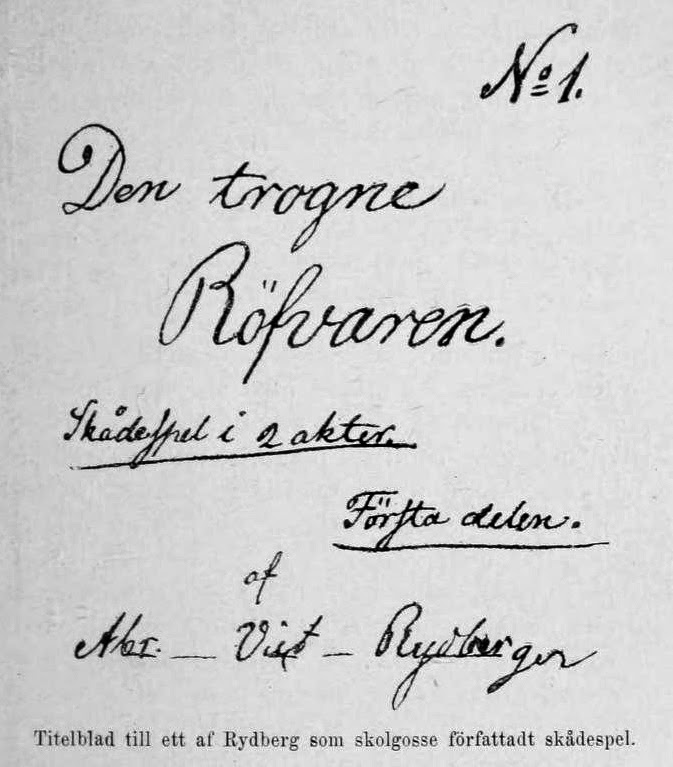 No 1.
Den trogne
Röfvaren.
Skådespel i 2 akter.
Första delen.
af
Abr. — Vict — Rydberger
Titelblad till ett af Rydberg som skolgosse författadt skådespel.